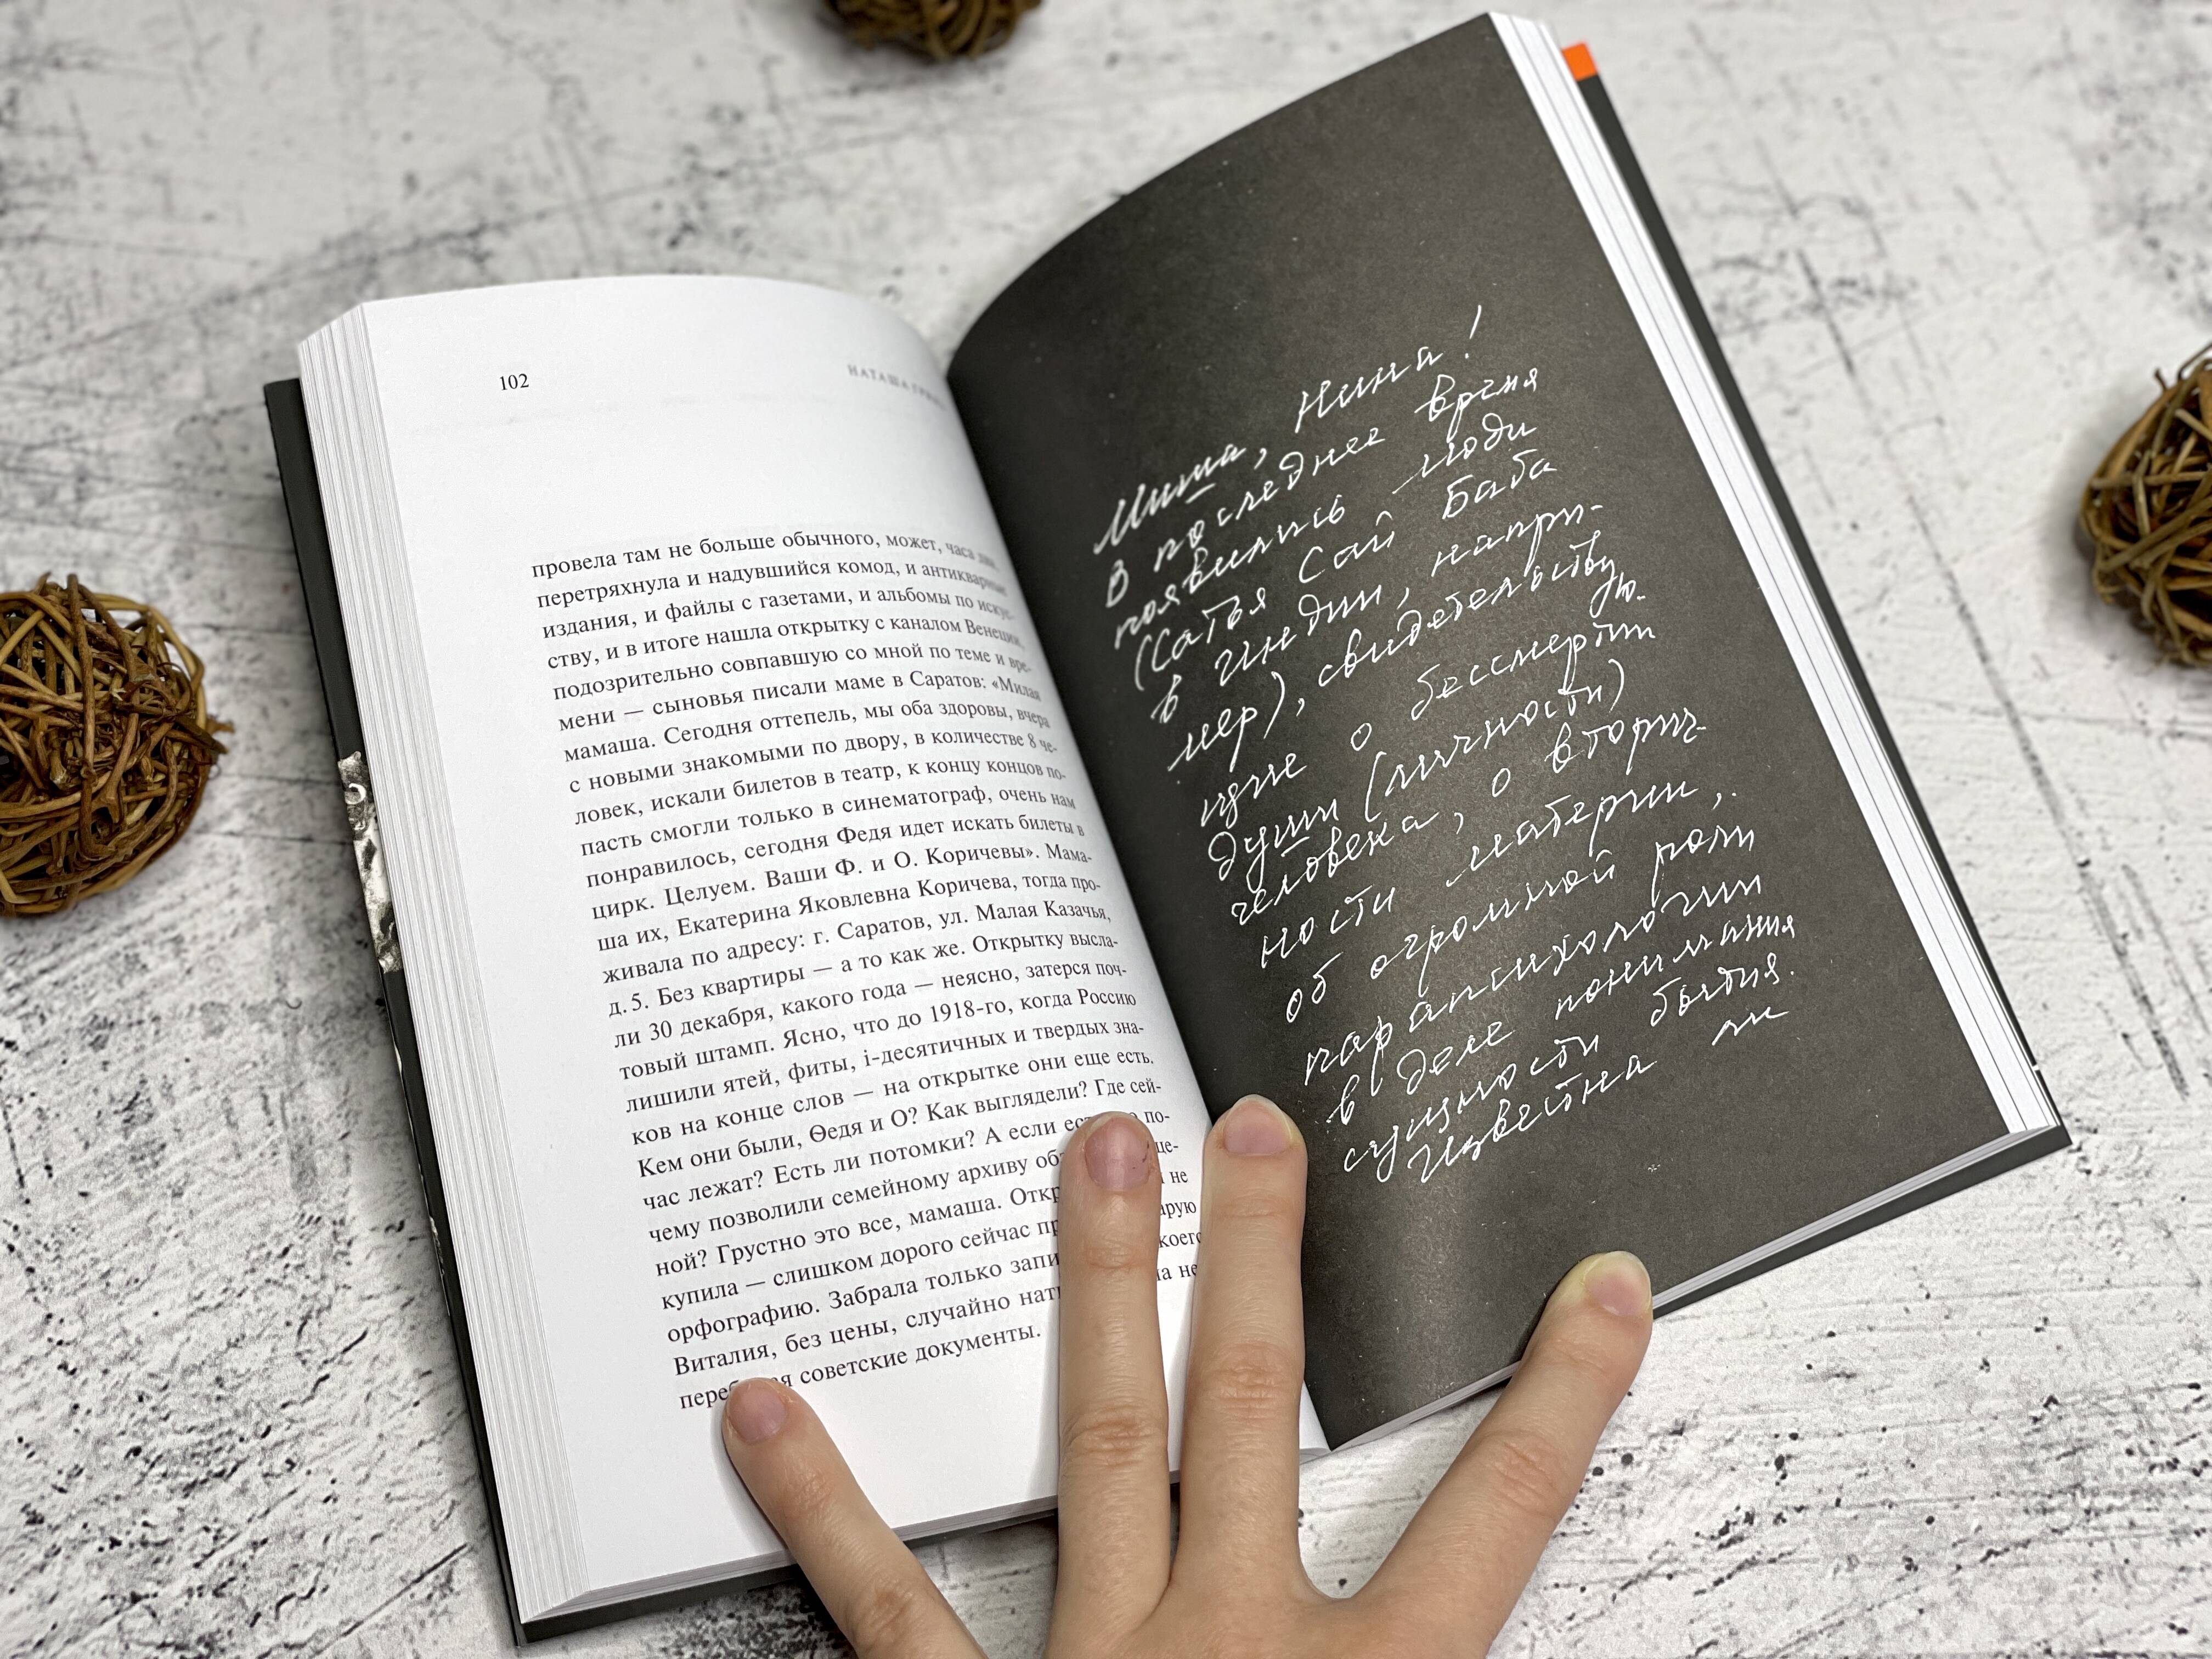 102
НАТАША
провела там не больше обычного, может, часа
перетряхнула и надувшийся комод, и антикварные
издания, и файлы с газетами, и альбомы по искус-
ству, и в итоге нашла открытку с каналом Венеции,
подозрительно совпавшую со мной по теме и вре-
мени — сыновья писали маме в Саратов: «Милая
мамаша. Сегодня оттепель, мы оба здоровы, вчера
с новыми знакомыми по двору, в количестве 8 че-
ловек, искали билетов в театр, к концу концов по-
пасть смогли только в синематограф, очень нам
понравилось, сегодня Федя идет искать билеты в
цирк. Целуем. Ваши Ф. и О. Коричевы». Мама-
ша их, Екатерина Яковлевна Коричева, тогда про-
живала по адресу: г. Саратов, ул. Малая Казачья,
д. 5. Без квартиры — а то как же. Открытку высла-
ли 30 декабря, какого года — неясно, затерся поч-
товый штамп. Ясно, что до 1918-го, когда Россию
лишили ятей, фиты, i-десятичных и твердых зна-
ков на конце слов — на открытке они еще есть.
Кем они были, Ѳедя и О? Как выглядели? Где сей-
час лежат? Есть ли потомки? А если ес по-
чему позволили семейному архиву об це-
ной? Грустно это все, мамаша. Откр не
купила — слишком дорого сейчас пр арую
орфографию. Забрала только запи коего
Виталия, без цены, случайно нат на не
переб я советские документы.
Миша, Нина!
В последнее время
появились люди
(Сатья Сай Баба
в Индии, напри-
мер), свидетельству
ю-
щие о бессмертии
души (личности)
человека, о вторич-
ности материи,
об огромной роли
парапсихологии
в деле понимания
сущности бытия.
Известна ли